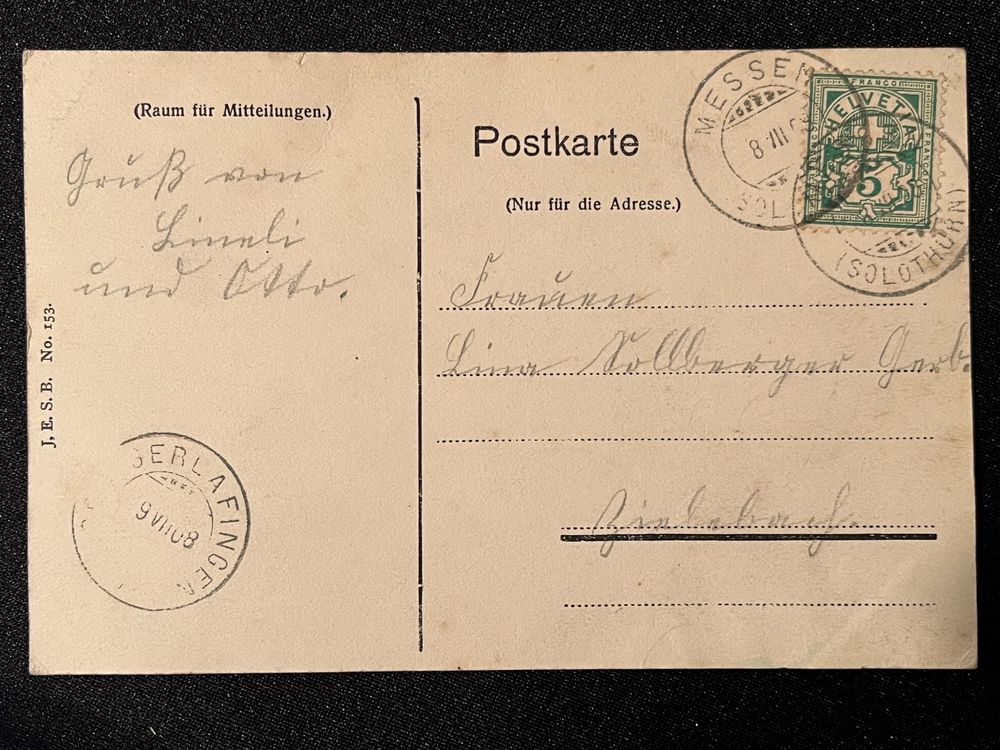 (Raum für Mitteilungen.)
Gruß von
Lineli
und Otto.
J. E. S. B. No. 153.
GERLAFINGEN
9 VII 08
Postkarte
(Nur für die Adresse.)
MESSEN
8 VII 0
(SOL
FRANCO
HELVETIA
FRANCO
5
(SOLOTHURN)
Frauen
Lina Sollberger Gerb.
Ziedebach.